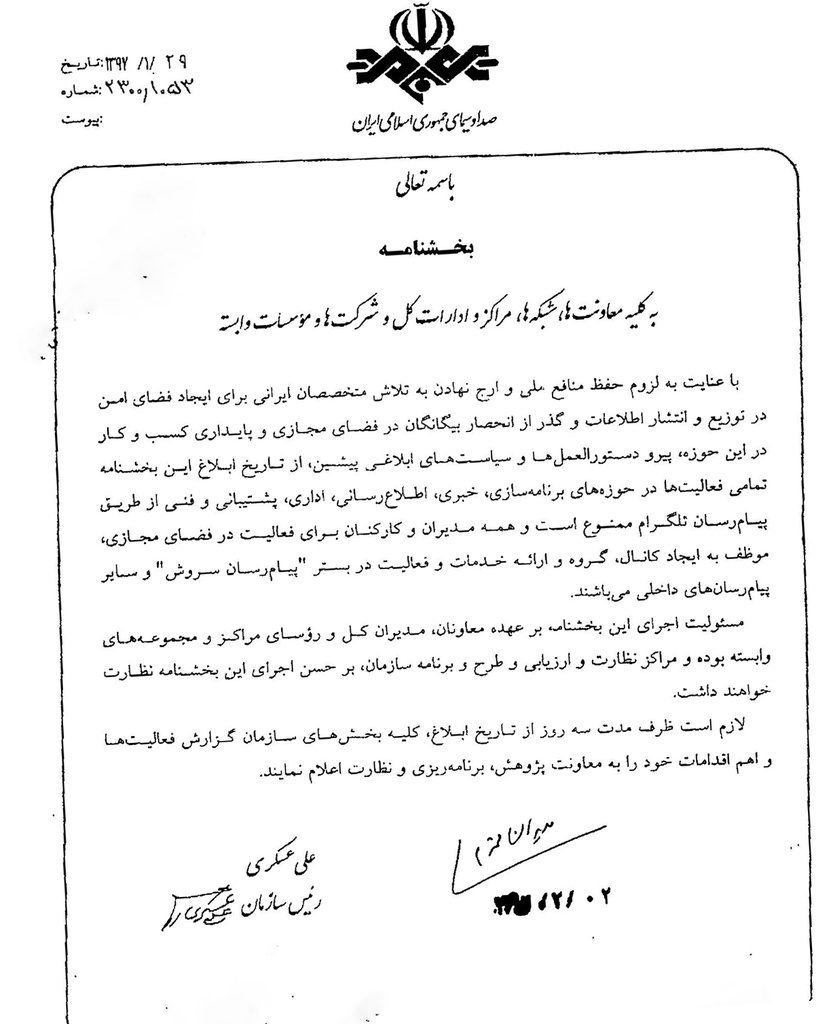 تاریخ: ۱۳۹۷/۱/۲۹
شماره: ۲۳۰۰/۱۰۵۳
پیوست:
صدا و سیمای جمهوری اسلامی ایران
باسمه تعالی
بخشنامه
به کلیه معاونت‌ها، شبکه‌ها، مراکز و ادارات کل و شرکت‌ها و مؤسسات وابسته
با عنایت به لزوم حفظ منافع ملی و ارج نهادن به تلاش متخصصان ایرانی برای ایجاد فضای امن
در توزیع و انتشار اطلاعات و گذر از انحصار بیگانگان در فضای مجازی و پایداری کسب و کار
در این حوزه، پیرو دستورالعمل‌ها و سیاست‌های ابلاغی پیشین، از تاریخ ابلاغ این بخشنامه
تمامی فعالیت‌ها در حوزه‌های برنامه‌سازی، خبری، اطلاع‌رسانی، اداری، پشتیبانی و فنی از طریق
پیام‌رسان تلگرام ممنوع است و همه مدیران و کارکنان برای فعالیت در فضای مجازی،
موظف به ایجاد کانال، گروه و ارائه خدمات و فعالیت در بستر "پیام‌رسان سروش" و سایر
پیام‌رسان‌های داخلی می‌باشند.
مسئولیت اجرای این بخشنامه بر عهده معاونان، مدیران کل و رؤسای مراکز و مجموعه‌های
وابسته بوده و مراکز نظارت و ارزیابی و طرح و برنامه سازمان، بر حسن اجرای این بخشنامه نظارت
خواهند داشت.
لازم است ظرف مدت سه روز از تاریخ ابلاغ، کلیه بخش‌های سازمان گزارش فعالیت‌ها
و اهم اقدامات خود را به معاونت پژوهش، برنامه‌ریزی و نظارت اعلام نمایند.
مدیران محترم
علی عسکری
رئیس سازمان
۲/۰۲/